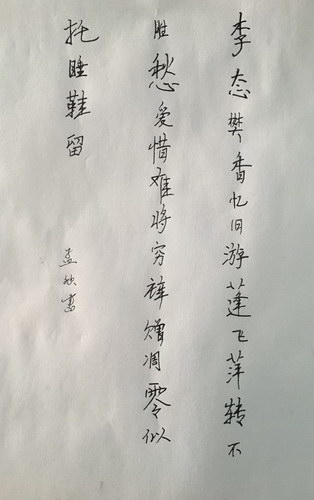 李态樊香忆旧游蓬飞萍转不
胜愁爱惜难将穷裤赠凋零似
托睡鞋留
孟